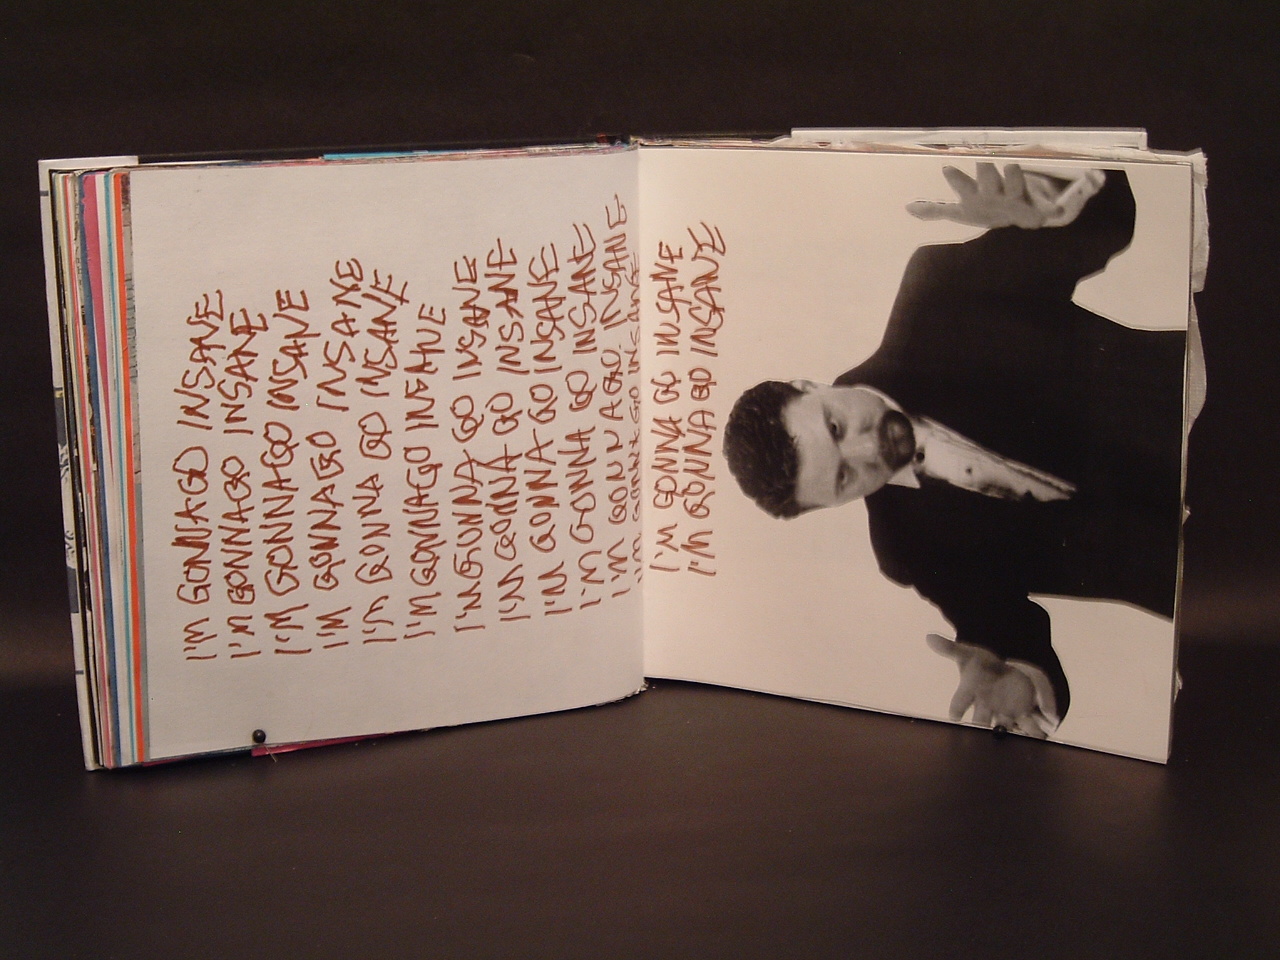 I'M GONNA GO INSANE
I'M GONNA GO INSANE
I'M GONNA GO INSANE
I'M GONNA GO INSANE
I'M GONNA GO INSANE
I'M GONNA GO INSANE
I'M GONNA GO INSANE
I'M GONNA GO INSANE
I'M GONNA GO INSANE
I'M GONNA GO INSANE
I'M GONNA GO INSANE
I'M GONNA GO INSANE
I'M GONNA GO INSANE
I'M GONNA GO INSANE